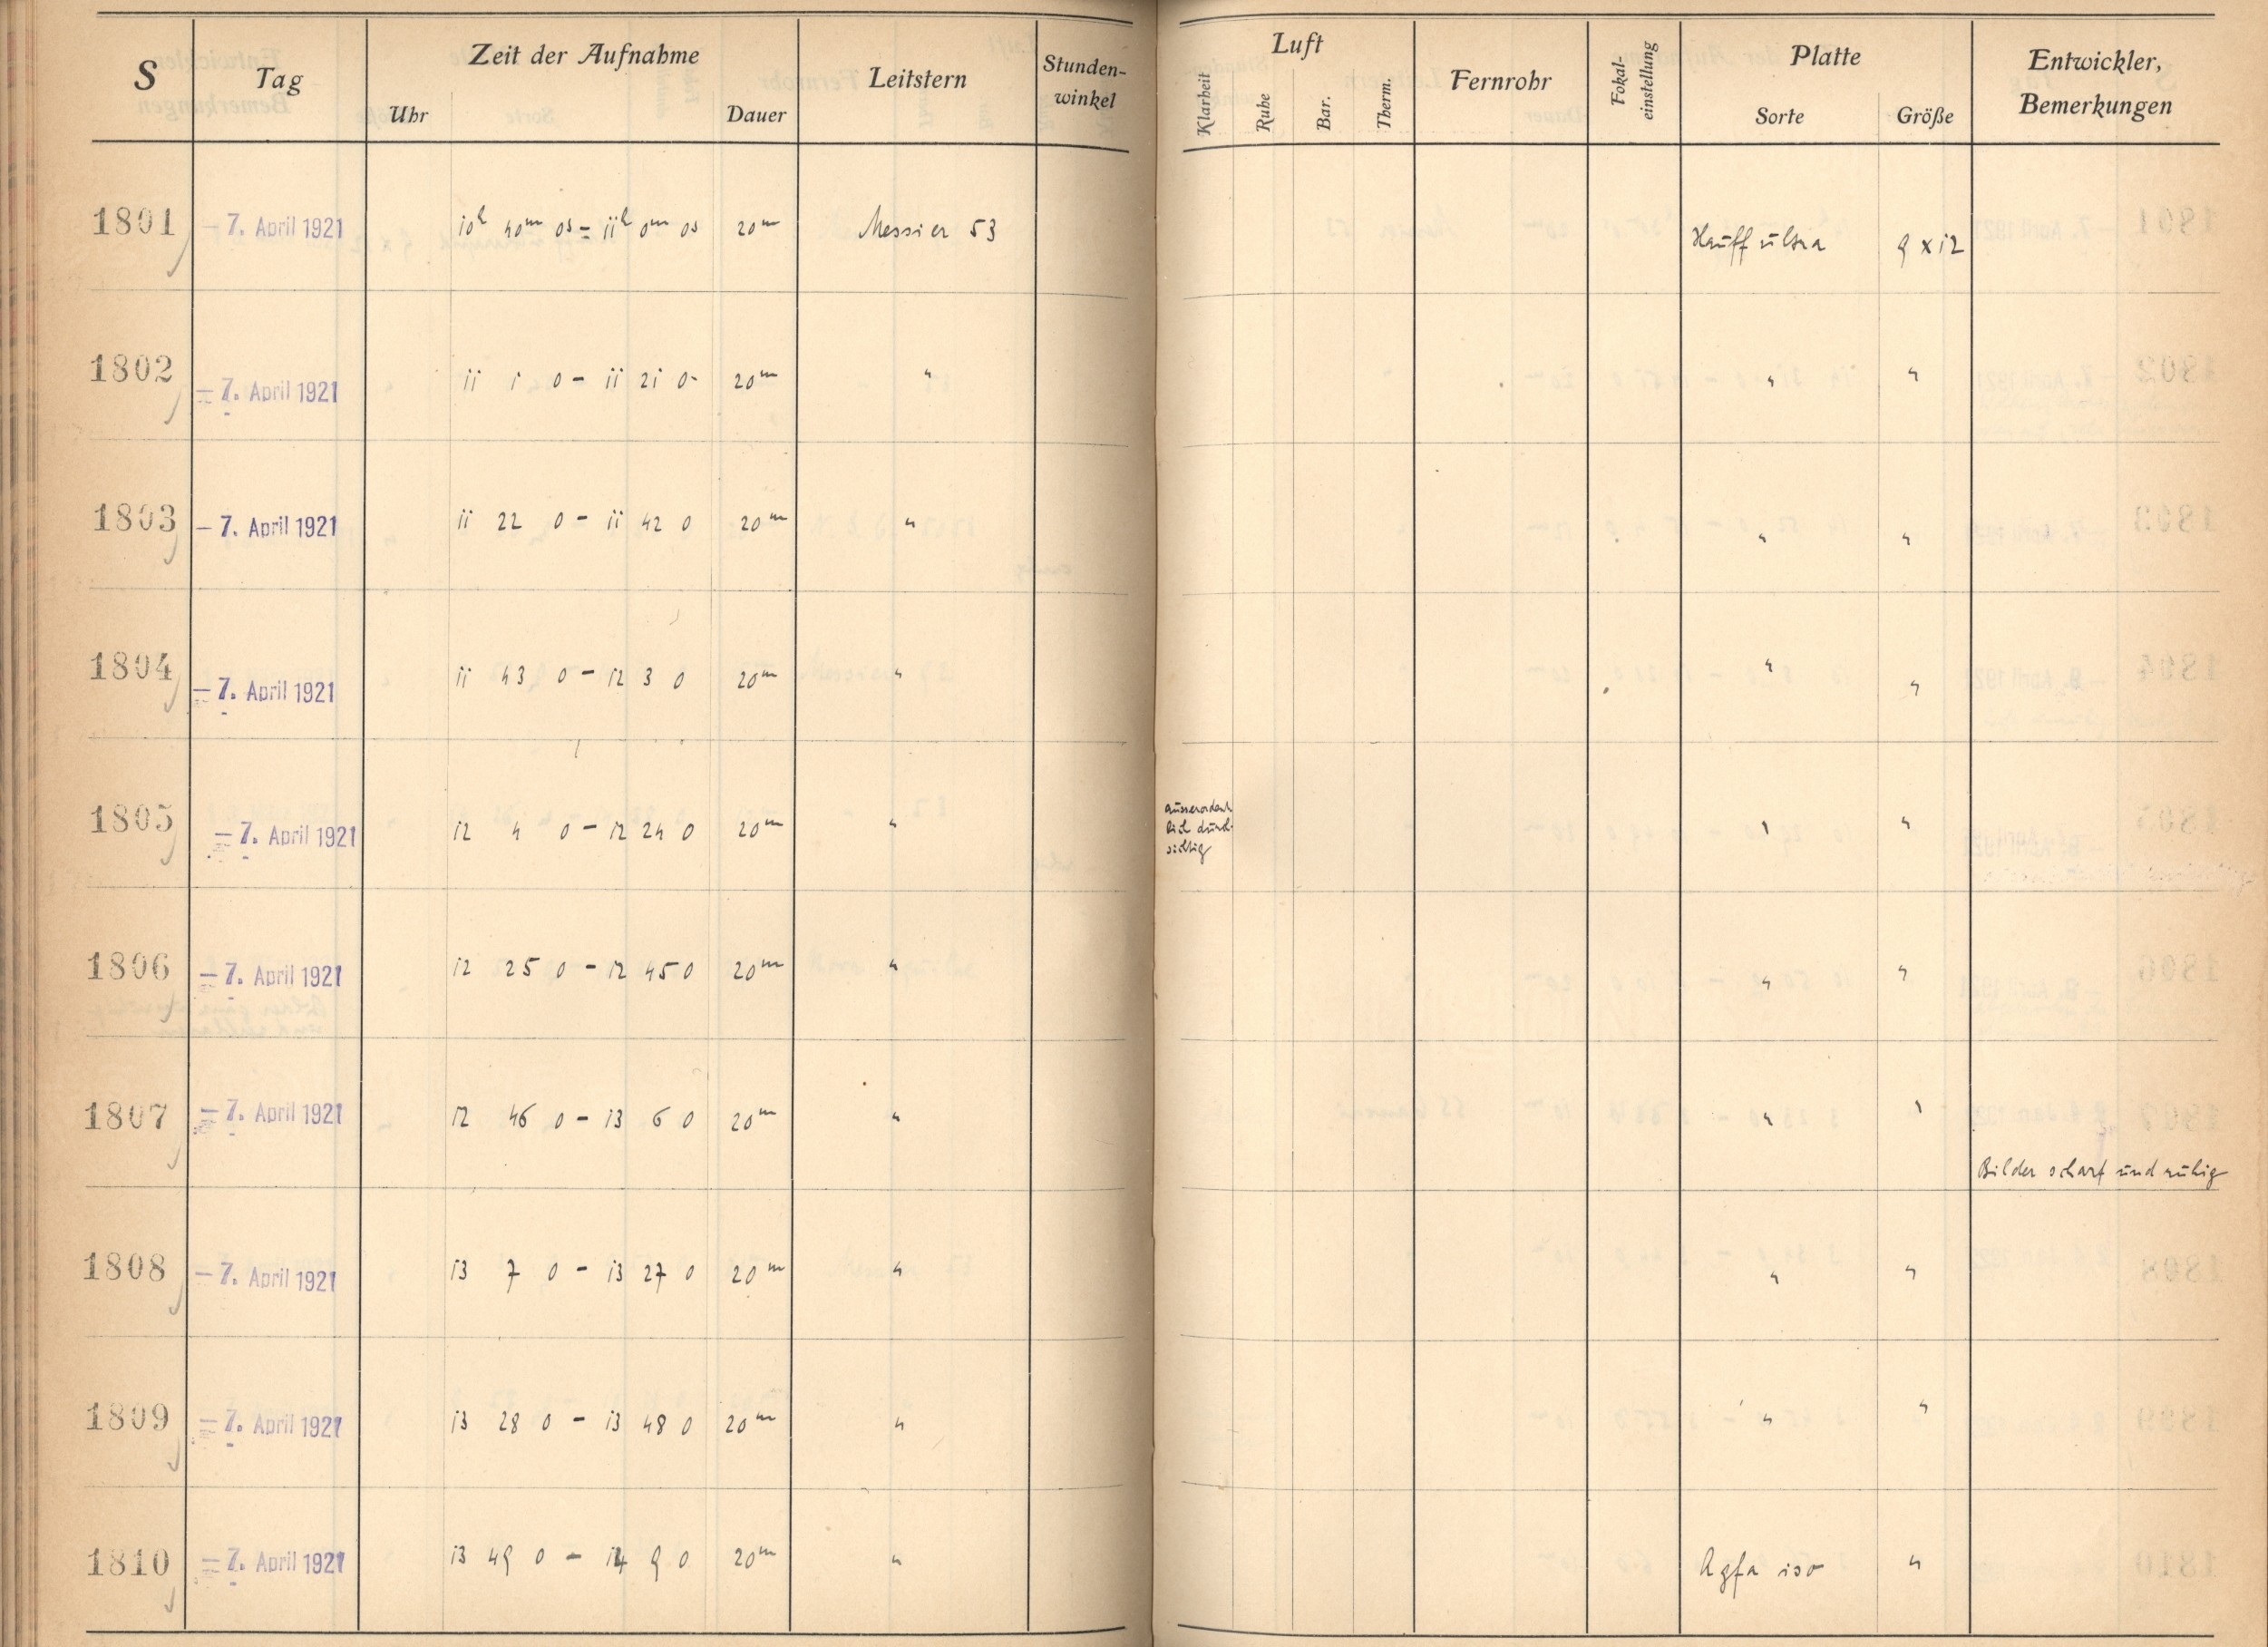 S Tag Zeit der Aufnahme Leitstern Stunden-winkel Luft Fernrohr Fokal-einstellung Platte Entwickler, Bemerkungen
Uhr Dauer Klarheit Ruhe Bar. Therm. Sorte Größe
1801 – 7. April 1921 10h 40m 0s – 11h 0m 0s 20m Messier 53 Hauff ultra 9 x 12
1802 – 7. April 1921 11 1 0 – 11 21 0 20m " " "
1803 – 7. April 1921 11 22 0 – 11 42 0 20m " " "
1804 – 7. April 1921 11 43 0 – 12 3 0 20m " " "
1805 – 7. April 1921 12 4 0 – 12 24 0 20m " ausserordent lich durch- sichtig " "
1806 – 7. April 1921 12 25 0 – 12 45 0 20m " " "
1807 – 7. April 1921 12 46 0 – 13 6 0 20m " " "
Bilder scharf und ruhig
1808 – 7. April 1921 13 7 0 – 13 27 0 20m " " "
1809 – 7. April 1921 13 28 0 – 13 48 0 20m " " "
1810 – 7. April 1921 13 49 0 – 14 9 0 20m " Agfa iso "